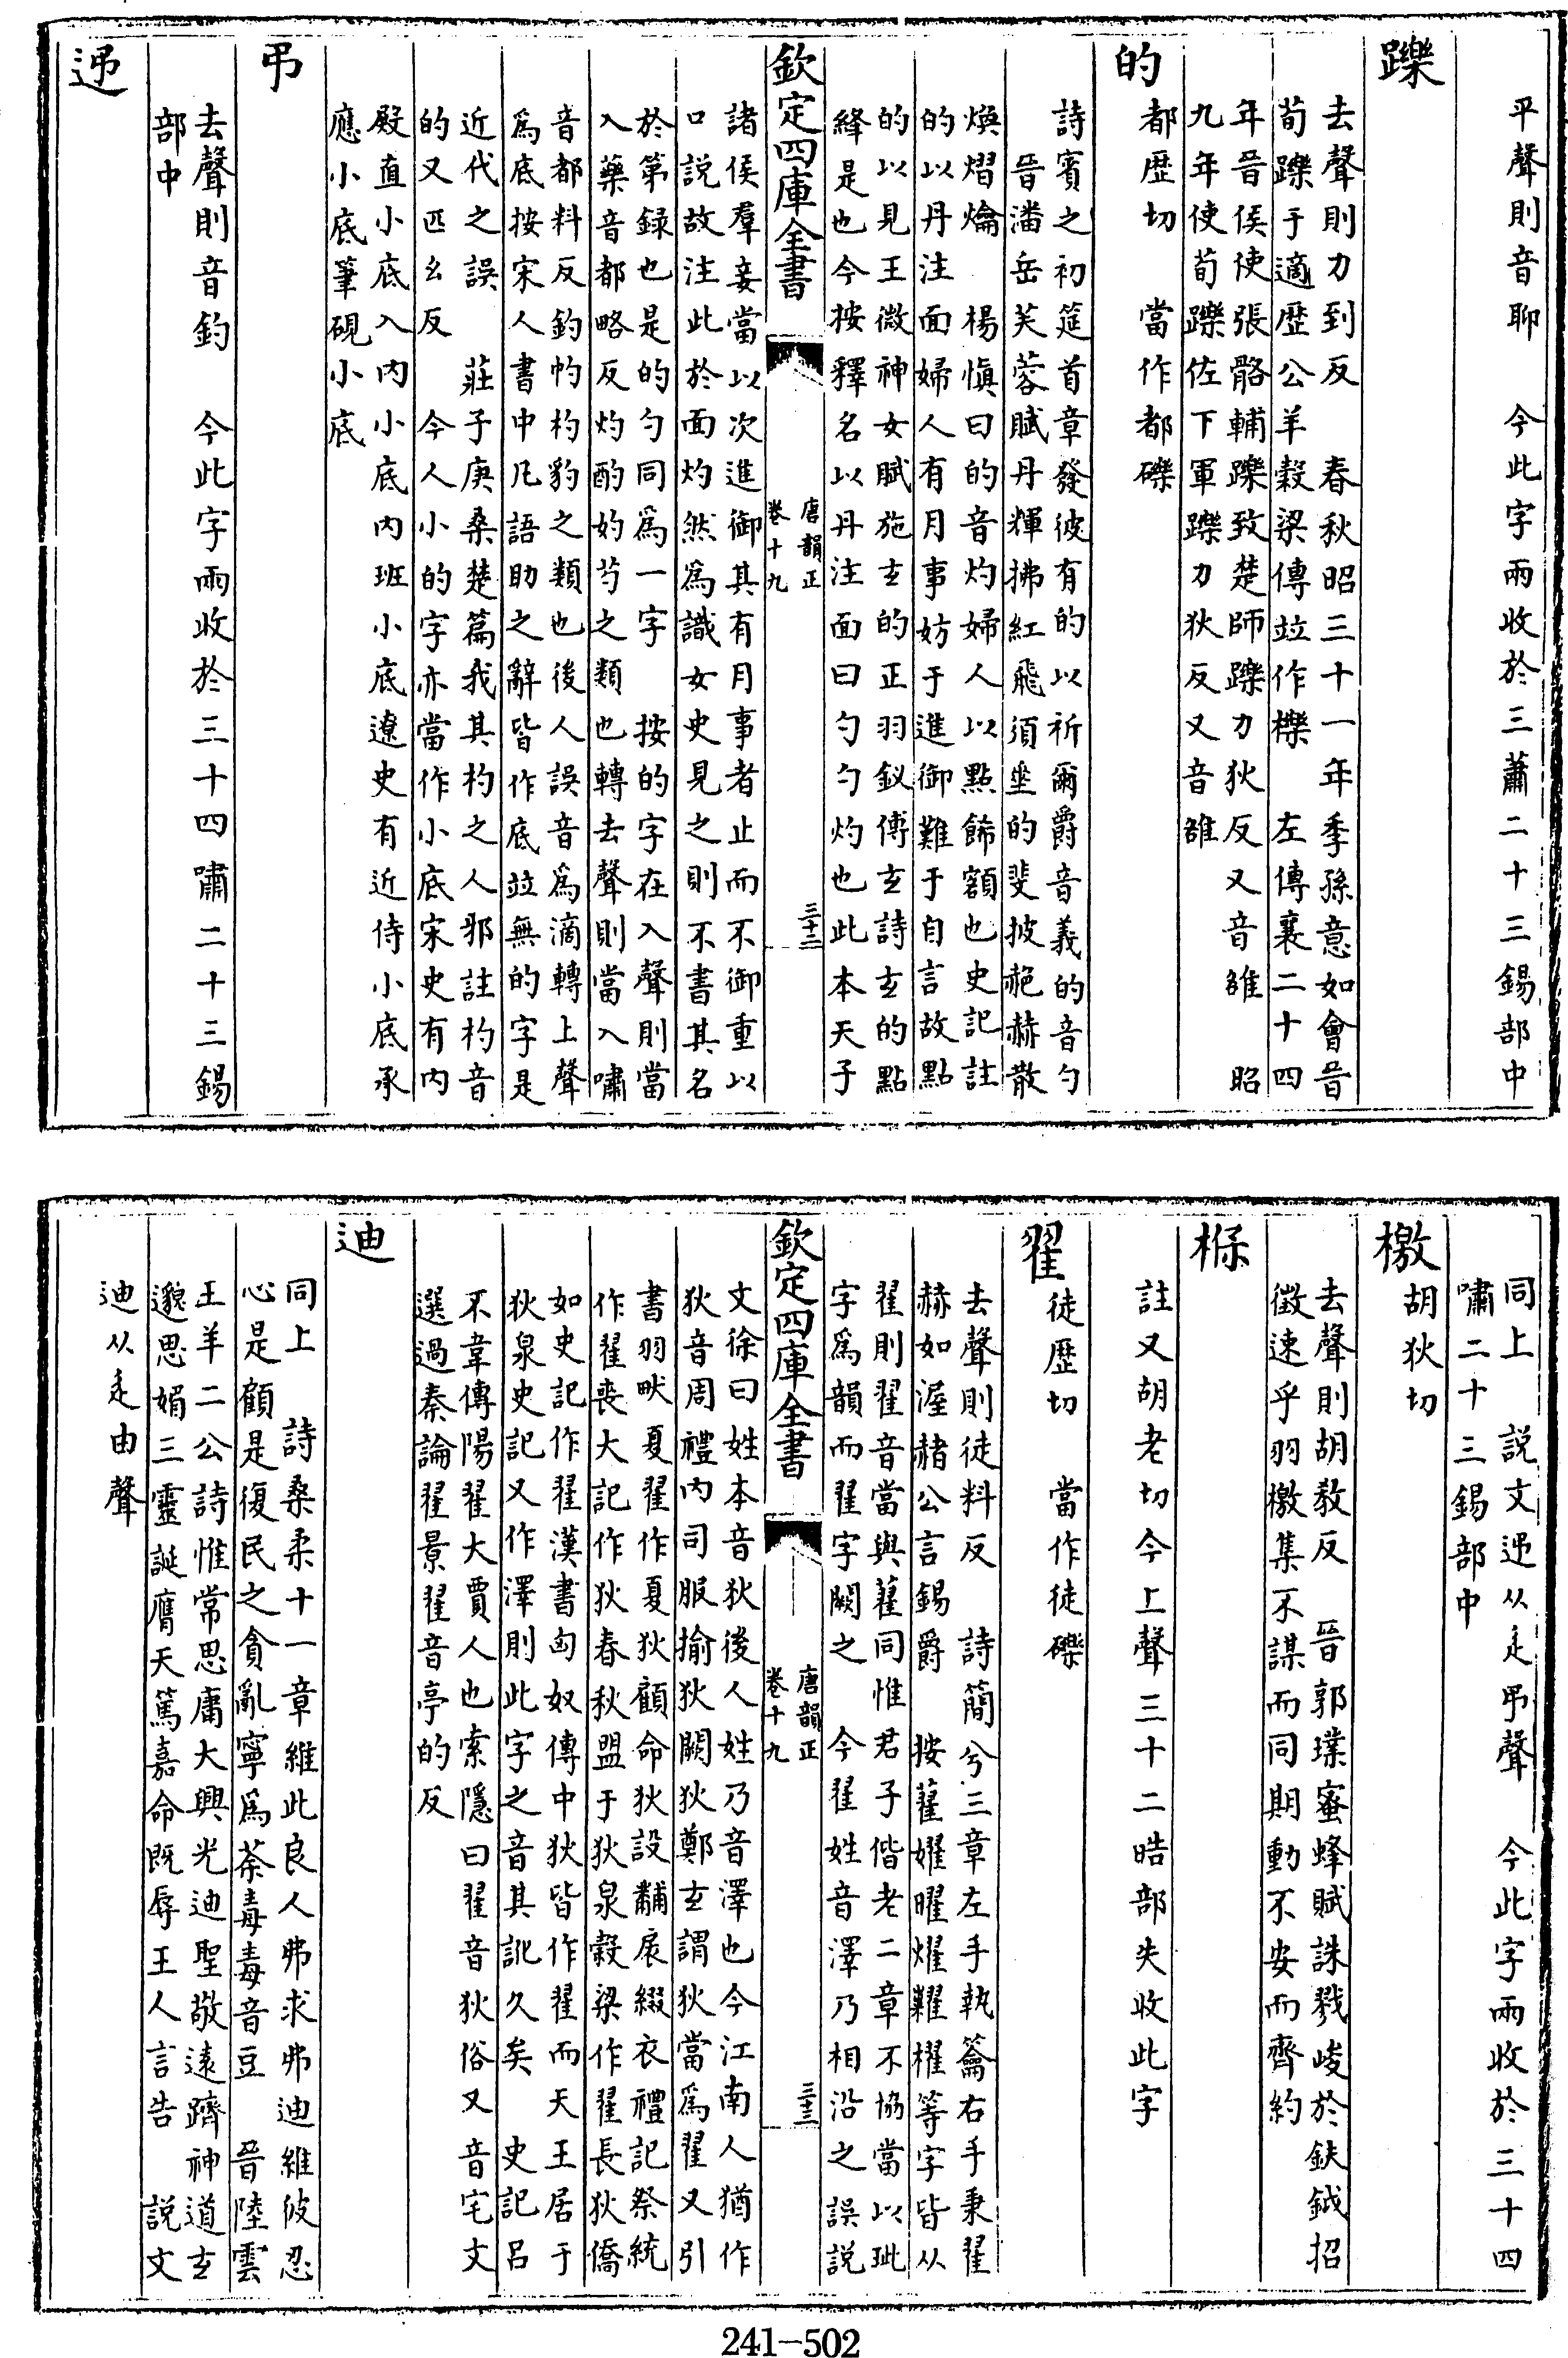 平聲則音聊　今此字兩收於三蕭二十三錫部中
躒
去聲則力到反　春秋昭三十一年季孫意如會晉
荀躒于適歷公羊穀梁傳竝作櫟　左傳襄二十四
年晉侯使張骼輔躒致楚師躒力狄反又音雒　昭
九年使荀躒佐下軍躒力狄反又音雒
的都歷切　當作都礫
詩賓之初筵首章發彼有的以祈爾爵音義的音勺
晉潘岳芙蓉賦丹輝拂紅飛須坐的斐披赩赫散
煥熠爚　楊慎曰的音灼婦人以點飾額也史記註
的以丹注面婦人有月事妨于進御難于自言故點
的以見王微神女賦施玄的正羽釵傅玄詩玄的點
絳是也今按釋名以丹注面曰勺勺灼也此本天子
欽定四庫全書
唐韻正
卷十九
三十二
諸侯羣妾當以次進御其有月事者止而不御重以
口說故注此於面灼然爲識女史見之則不書其名
於第録也是的勺同爲一字　按的字在入聲則當
入藥音都略反灼酌妁芍之類也轉去聲則當入嘯
音都料反釣䄪杓豹之類也後人誤音爲滴轉上聲
爲底按宋人書中凡語助之辭皆作底竝無的字是
近代之誤　莊子庚桑楚篇我其杓之人邪註杓音
的又匹幺反　今人小的字亦當作小底宋史有內
殿直小底入內小底內班小底遼史有近侍小底承
應小底筆硯小底
弔
去聲則音釣　今此字兩收於三十四嘯二十三錫
部中
迊
同上　說文迊从辵弔聲　今此字兩收於三十四
嘯二十三錫部中
檄胡狄切
去聲則胡教反　晉郭璞蜜蜂賦誅戮峻於鈇鉞招
徵速乎羽檄集不謀而同期動不安而齊約
㮾
註又胡老切今上聲三十二晧部失收此字
翟徒歷切　當作徒礫
去聲則徒料反　詩簡兮三章左手執籥右手秉翟
赫如渥赭公言錫爵　按藋嬥曜燿糶櫂等字皆从
翟則翟音當與藋同惟君子偕老二章不協當以玼
字爲韻而翟字闕之　今翟姓音澤乃相沿之誤說
欽定四庫全書
唐韻正
卷十九
三十三
文徐曰姓本音狄後人姓乃音澤也今江南人猶作
狄音周禮內司服揄狄闕狄鄭玄謂狄當爲翟又引
書羽畎夏翟作夏狄顧命狄設黼扆綴衣禮記祭統
作翟喪大記作狄春秋盟于狄泉穀梁作翟長狄僑
如史記作翟漢書匈奴傳中狄皆作翟而天王居于
狄泉史記又作澤則此字之音其訛久矣　史記呂
不韋傳陽翟大賈人也索隱曰翟音狄俗又音宅文
選過秦論翟景翟音亭的反
迪
同上　詩桑柔十一章維此良人弗求弗迪維彼忍
心是顧是復民之貪亂寧爲荼毒毒音豆　晉陸雲
王羊二公詩惟常思庸大興光迪聖敬遠躋神道玄
邈思媚三靈誕膺天篤嘉命既辱王人言告　說文
迪从辵由聲
241-502